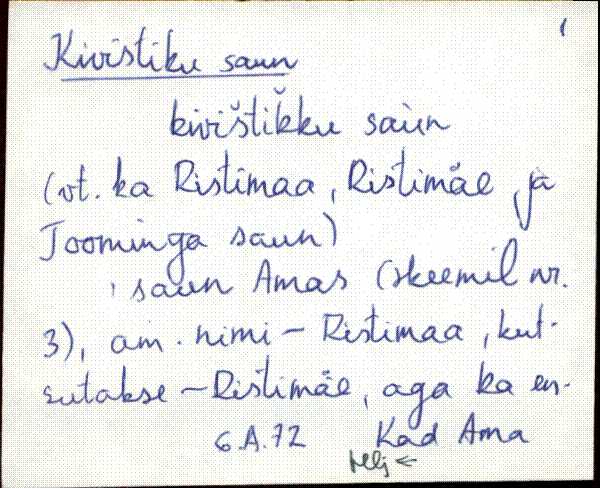 1
Kivistiku saun
kivištikku saùn
(vt. ka Ristimaa, Ristimäe ja
Toominga saun)
saun Amas (skeemil nr.
3), am. nimi - Ristimaa, kut-
sutakse - Ristimäe, aga ka en-
6.A.72 Kad Ama